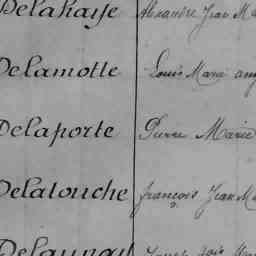 Delahaye Alexandre Jean Ma
Delamotte Louis Marie aug
Delaporte Pierre Marie
Delatouche françois Jean M
Delaunay